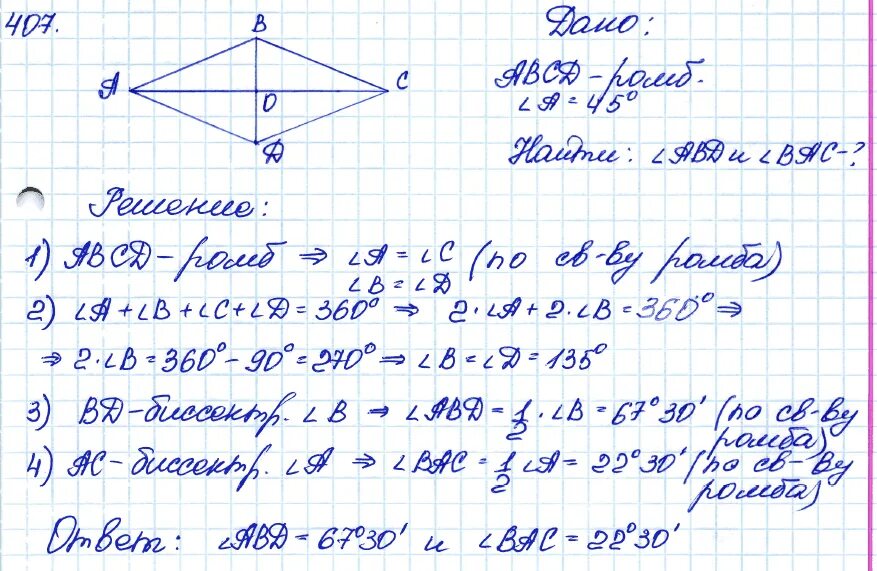 407.
B
A
O
C
D
Дано:
ABCD - ромб.
∠A = 45°
Найти: ∠ABD и ∠BAC - ?
Решение:
1) ABCD - ромб ⇒ ∠A = ∠C (по св-ву ромба)
∠B = ∠D
2) ∠A + ∠B + ∠C + ∠D = 360° ⇒ 2·∠A + 2·∠B = 360° ⇒
⇒ 2·∠B = 360° - 90° = 270° ⇒ ∠B = ∠D = 135°
3) BD - биссектр. ∠B ⇒ ∠ABD = 1/2 · ∠B = 67°30' (по св-ву
ромба)
4) AC - биссектр. ∠A ⇒ ∠BAC = 1/2 ∠A = 22°30' (по св-ву
ромба)
Ответ: ∠ABD = 67°30' и ∠BAC = 22°30'